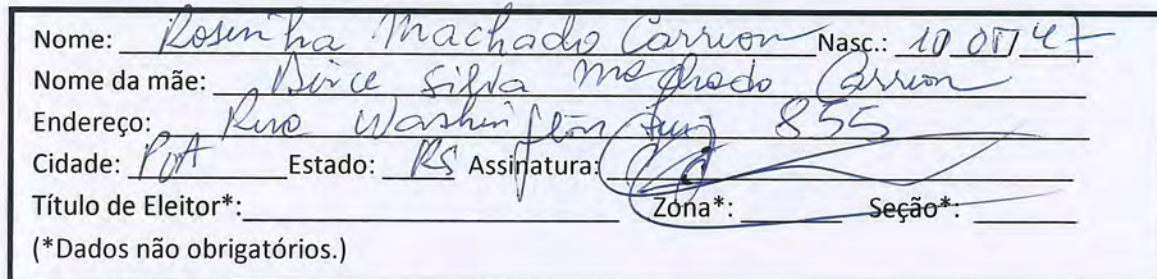 Nome: Rosinha Machado Carrion Nasc.: 10 01 47
Nome da mãe: Dirce Silva Machado Carrion
Endereço: Rua Washington Luiz 855
Cidade: POA Estado: RS Assinatura:
Título de Eleitor*: Zona*: Seção*:
(*Dados não obrigatórios.)